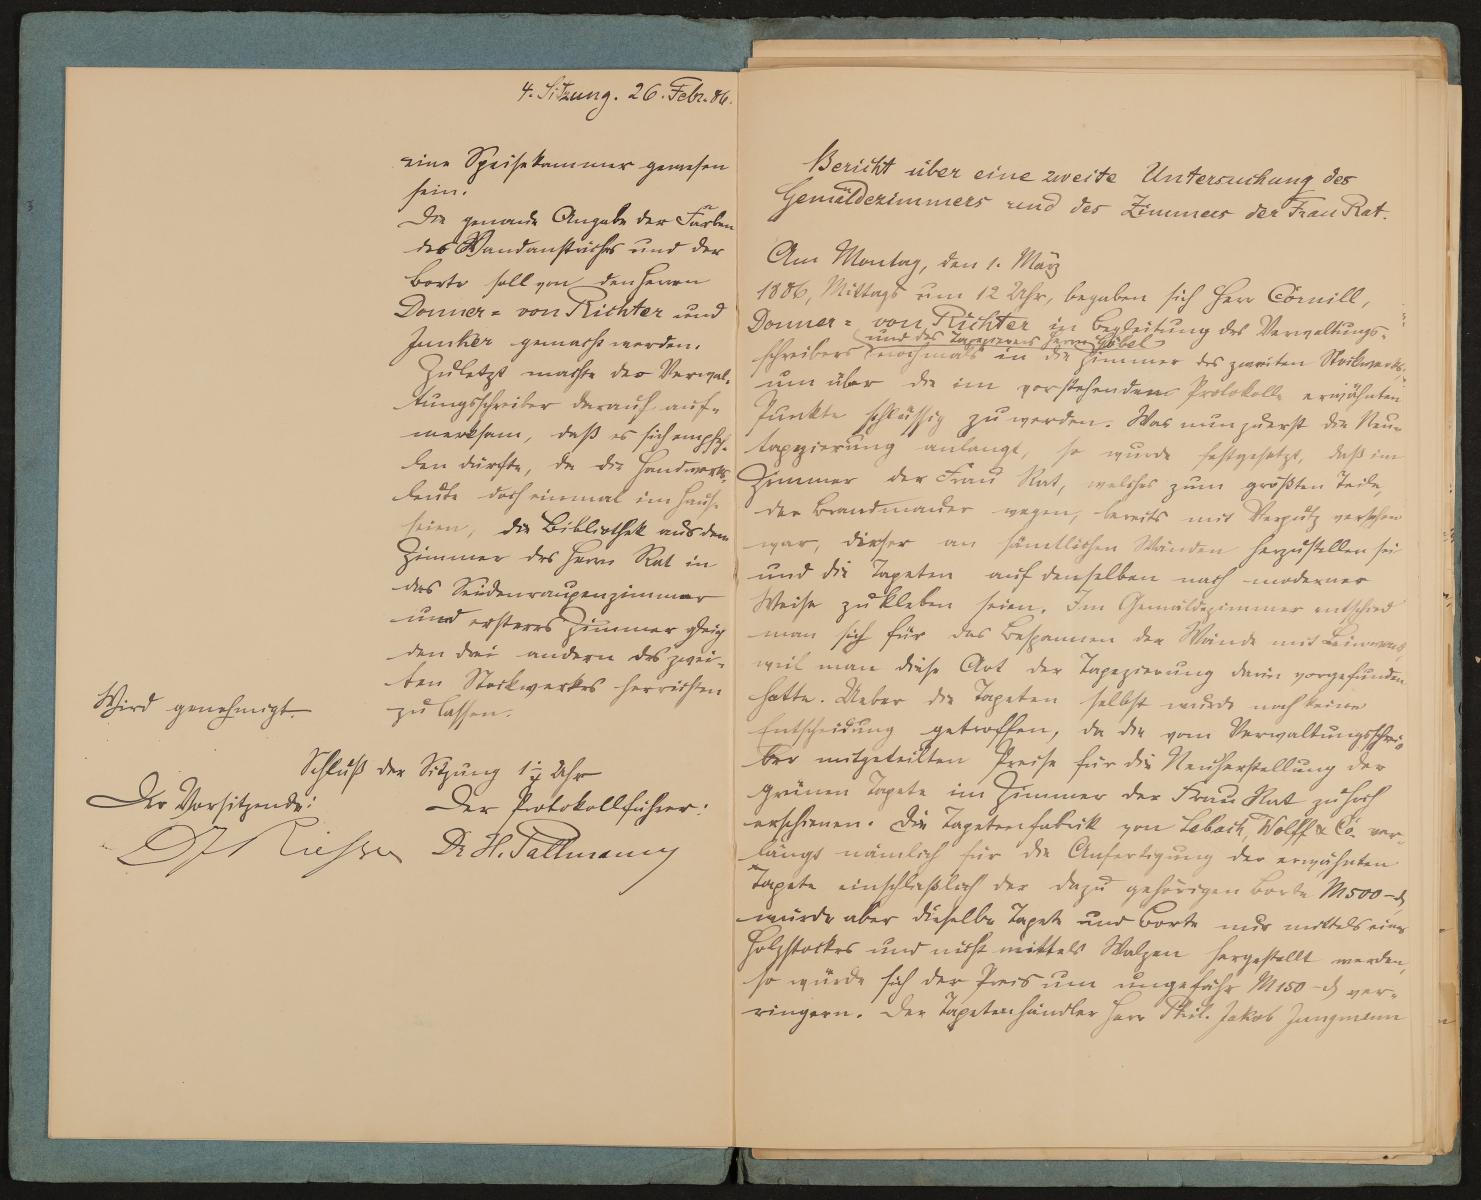 4. Sitzung. 26. Febr. 86.
eine Speisekammer gewesen
sein.
Die genaue Angabe der Farben
des Wandanstriches und der
Borte soll von den Herren
Donner-von Richter und
Junker gemacht werden.
Zuletzt machte der Verwal-
tungsschreiber darauf auf-
merksam, daß es sich empfeh-
len dürfte, da die Handwerks-
leute doch einmal im Hause
seien, die Bibliothek aus dem
Zimmer des Herrn Rat in
das Seidenraupenzimmer
und ersteres Zimmer gleich
den drei andern des zwei-
ten Stockwerkes herrichten
zu lassen.
Wird genehmigt.
Schluß der Sitzung 1 1/4 Uhr
Der Vorsitzende:
Der Protokollführer:
Dr. H. Pallmann
Bericht über eine zweite Untersuchung des
Gemäldezimmers und des Zimmers der Frau Rat.
Am Montag, den 1. März
1886, Mittags um 12 Uhr, begaben sich Herr Cornill,
Donner-von Richter in Begleitung des Verwaltungs-
und des Tapezierers Herrn Göbel
schreibers nochmals in die Zimmer des zweiten Stockwerks,
um über die im vorstehenden Protokolle erwähnten
Punkte schlüssig zu werden. Was nun zuerst die Neu-
tapezierung anlangt, so wurde festgesetzt, daß im
Zimmer der Frau Rat, welches zum größten Teile,
der Brandmauer wegen, bereits mit Verputz versehen
war, dieser an sämtlichen Wänden herzustellen sei
und die Tapeten auf denselben nach moderner
Weise zu kleben seien. Im Gemäldezimmer entschied
man sich für das Bespannen der Wände mit Leinwand,
weil man diese Art der Tapezierung darin vorgefunden
hatte. Ueber die Tapeten selbst wurde noch keine
Entscheidung getroffen, da die vom Verwaltungsschrei-
ber mitgeteilten Preise für die Neuherstellung der
grünen Tapete im Zimmer der Frau Rat zu hoch
erschienen. Die Tapetenfabrik von Lobach, Wolff & Co. ver-
langt nämlich für die Anfertigung der erwähnten
Tapete einschließlich der dazu gehörigen Borte M 500 -
würde aber dieselbe Tapete und Borte nur mittels eines
Holzstockes und nicht mittels Walzen hergestellt werden,
so würde sich der Preis um ungefähr M 150 - ver-
ringern. Der Tapetenhändler Herr Phil. Jakob Jungmann